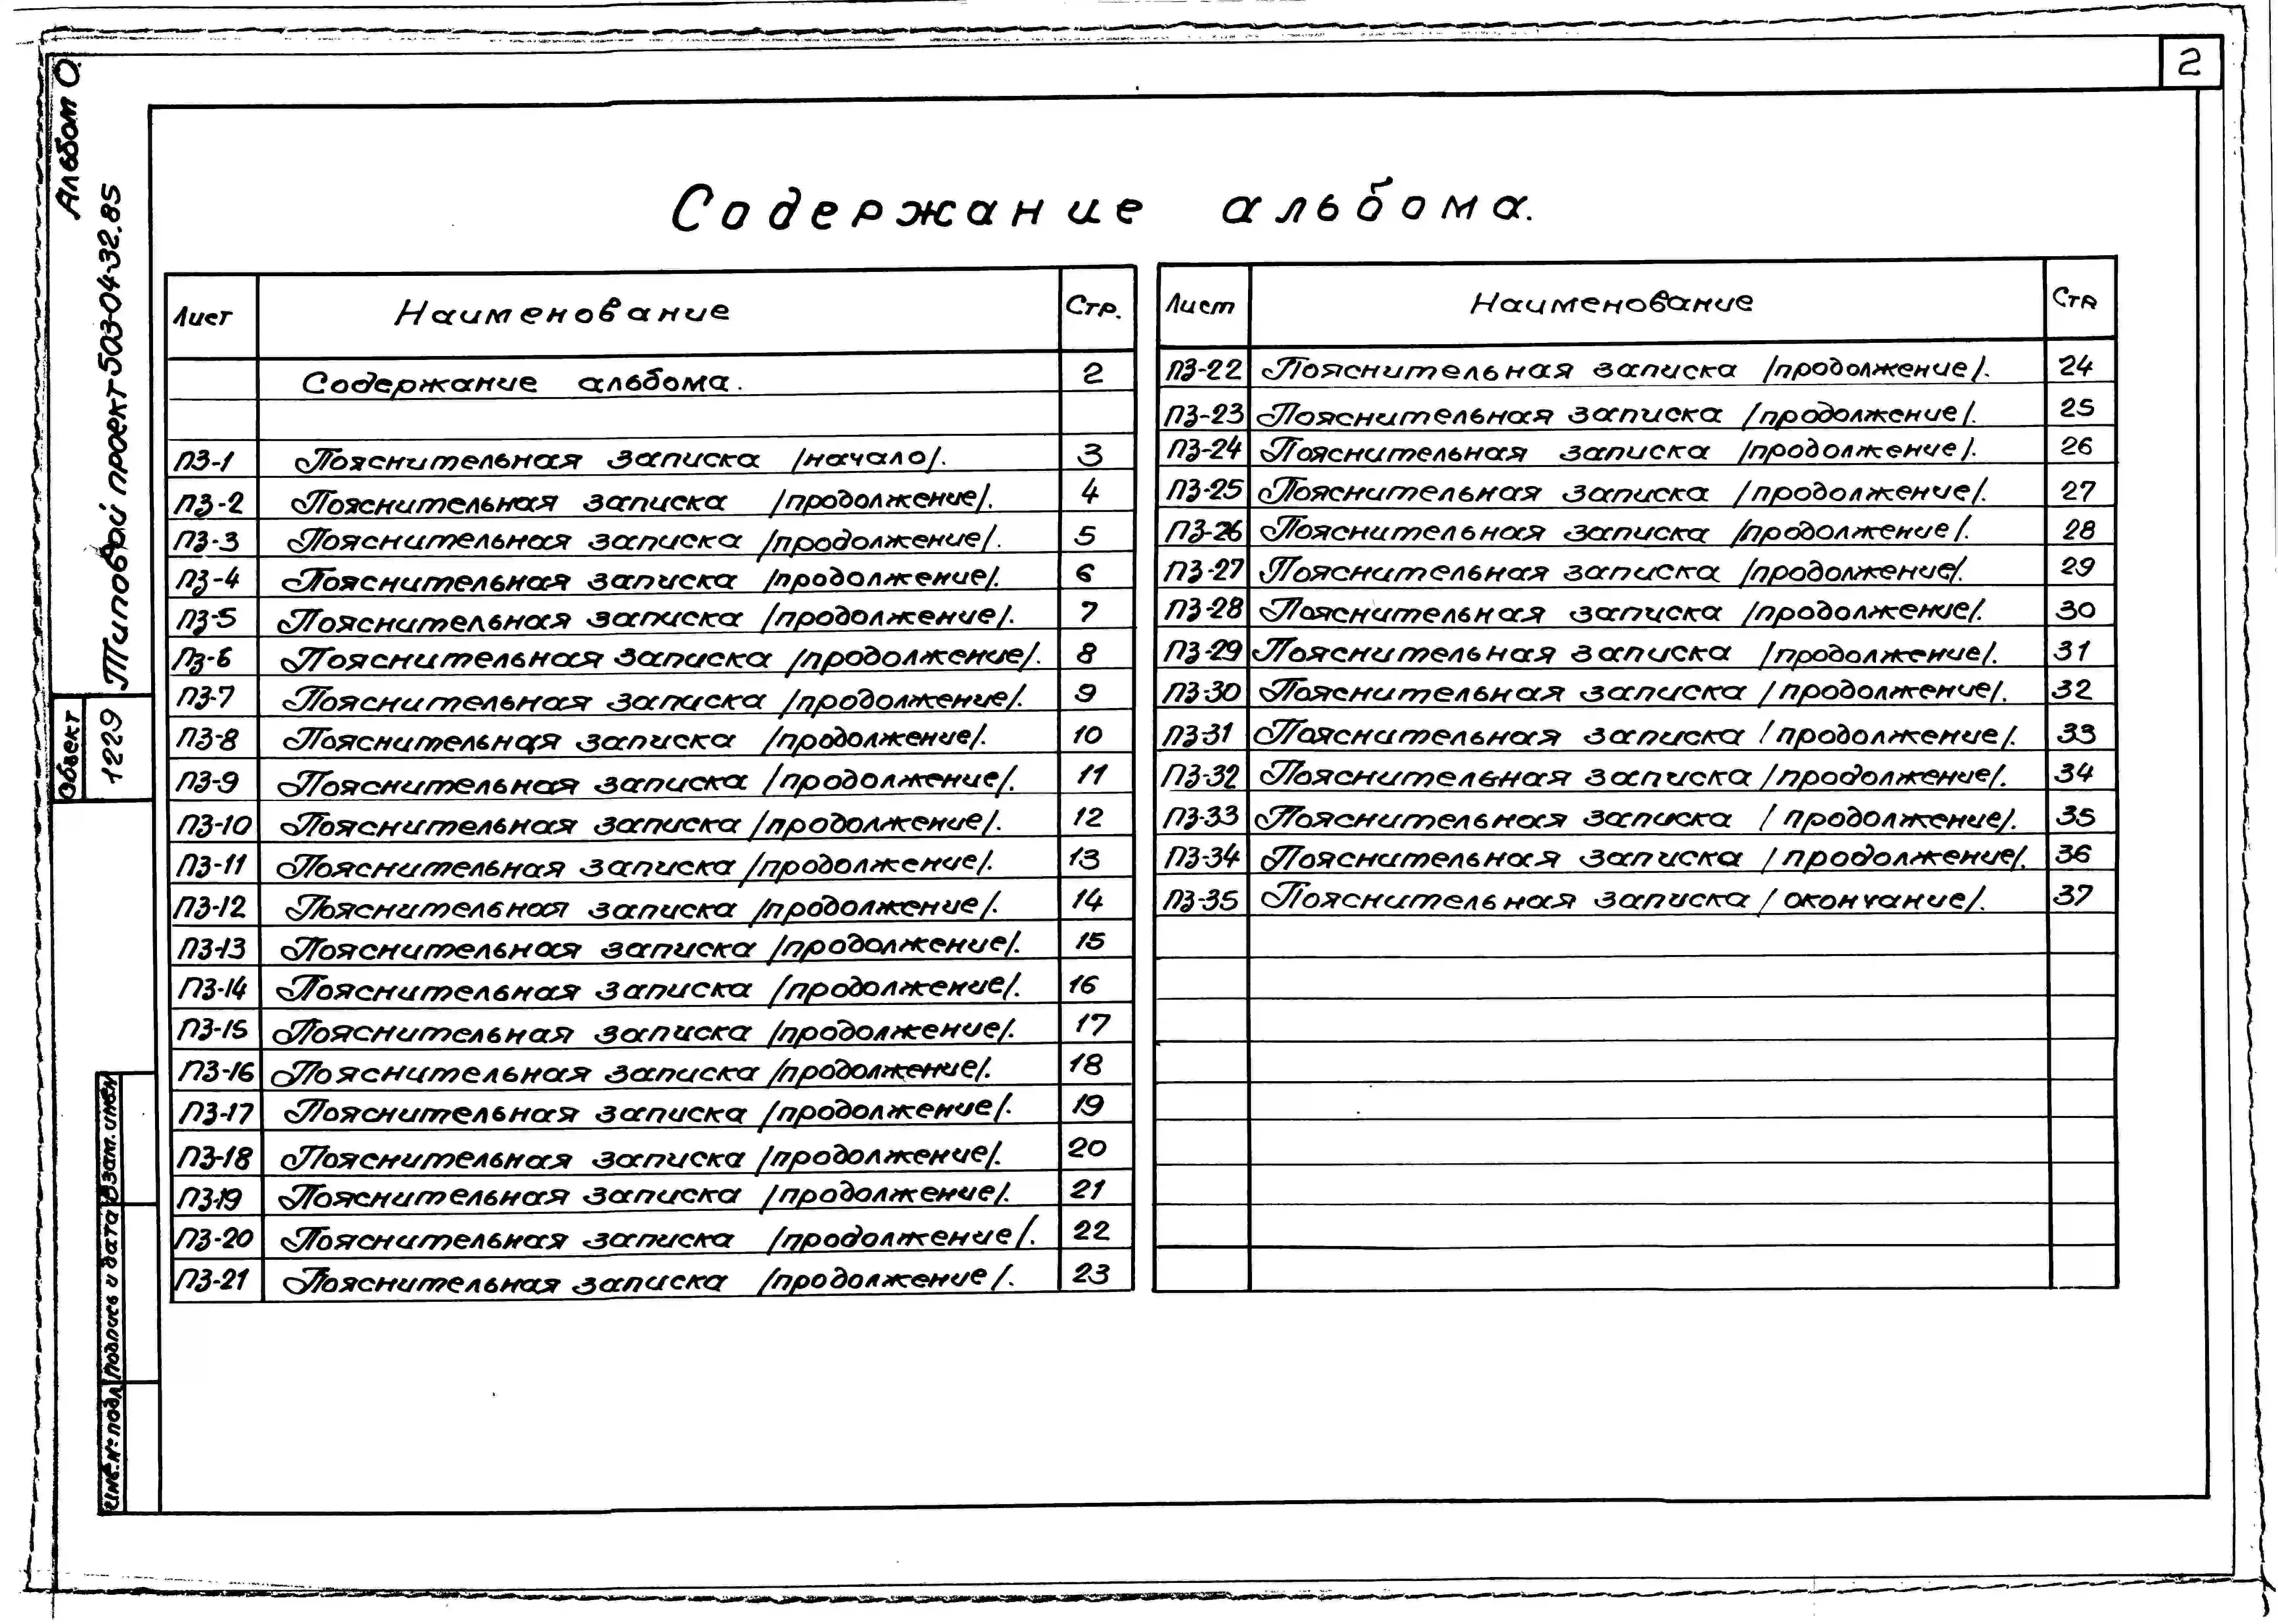 2
Альбом О.
Типовой проект 503-04-32.85
Объект
1229
Взам. инв.№
Подпись и дата
Инв.№ подл.
Содержание альбома.
Лист Наименование Стр.
Содержание альбома. 2
ПЗ-1 Пояснительная записка /начало/. 3
ПЗ-2 Пояснительная записка /продолжение/. 4
ПЗ-3 Пояснительная записка /продолжение/. 5
ПЗ-4 Пояснительная записка /продолжение/. 6
ПЗ-5 Пояснительная записка /продолжение/. 7
ПЗ-6 Пояснительная записка /продолжение/. 8
ПЗ-7 Пояснительная записка /продолжение/. 9
ПЗ-8 Пояснительная записка /продолжение/. 10
ПЗ-9 Пояснительная записка /продолжение/. 11
ПЗ-10 Пояснительная записка /продолжение/. 12
ПЗ-11 Пояснительная записка /продолжение/. 13
ПЗ-12 Пояснительная записка /продолжение/. 14
ПЗ-13 Пояснительная записка /продолжение/. 15
ПЗ-14 Пояснительная записка /продолжение/. 16
ПЗ-15 Пояснительная записка /продолжение/. 17
ПЗ-16 Пояснительная записка /продолжение/. 18
ПЗ-17 Пояснительная записка /продолжение/. 19
ПЗ-18 Пояснительная записка /продолжение/. 20
ПЗ-19 Пояснительная записка /продолжение/. 21
ПЗ-20 Пояснительная записка /продолжение/. 22
ПЗ-21 Пояснительная записка /продолжение/. 23
Лист Наименование Стр
ПЗ-22 Пояснительная записка /продолжение/. 24
ПЗ-23 Пояснительная записка /продолжение/. 25
ПЗ-24 Пояснительная записка /продолжение/. 26
ПЗ-25 Пояснительная записка /продолжение/. 27
ПЗ-26 Пояснительная записка /продолжение/. 28
ПЗ-27 Пояснительная записка /продолжение/. 29
ПЗ-28 Пояснительная записка /продолжение/. 30
ПЗ-29 Пояснительная записка /продолжение/. 31
ПЗ-30 Пояснительная записка /продолжение/. 32
ПЗ-31 Пояснительная записка /продолжение/. 33
ПЗ-32 Пояснительная записка /продолжение/. 34
ПЗ-33 Пояснительная записка /продолжение/. 35
ПЗ-34 Пояснительная записка /продолжение/. 36
ПЗ-35 Пояснительная записка /окончание/. 37